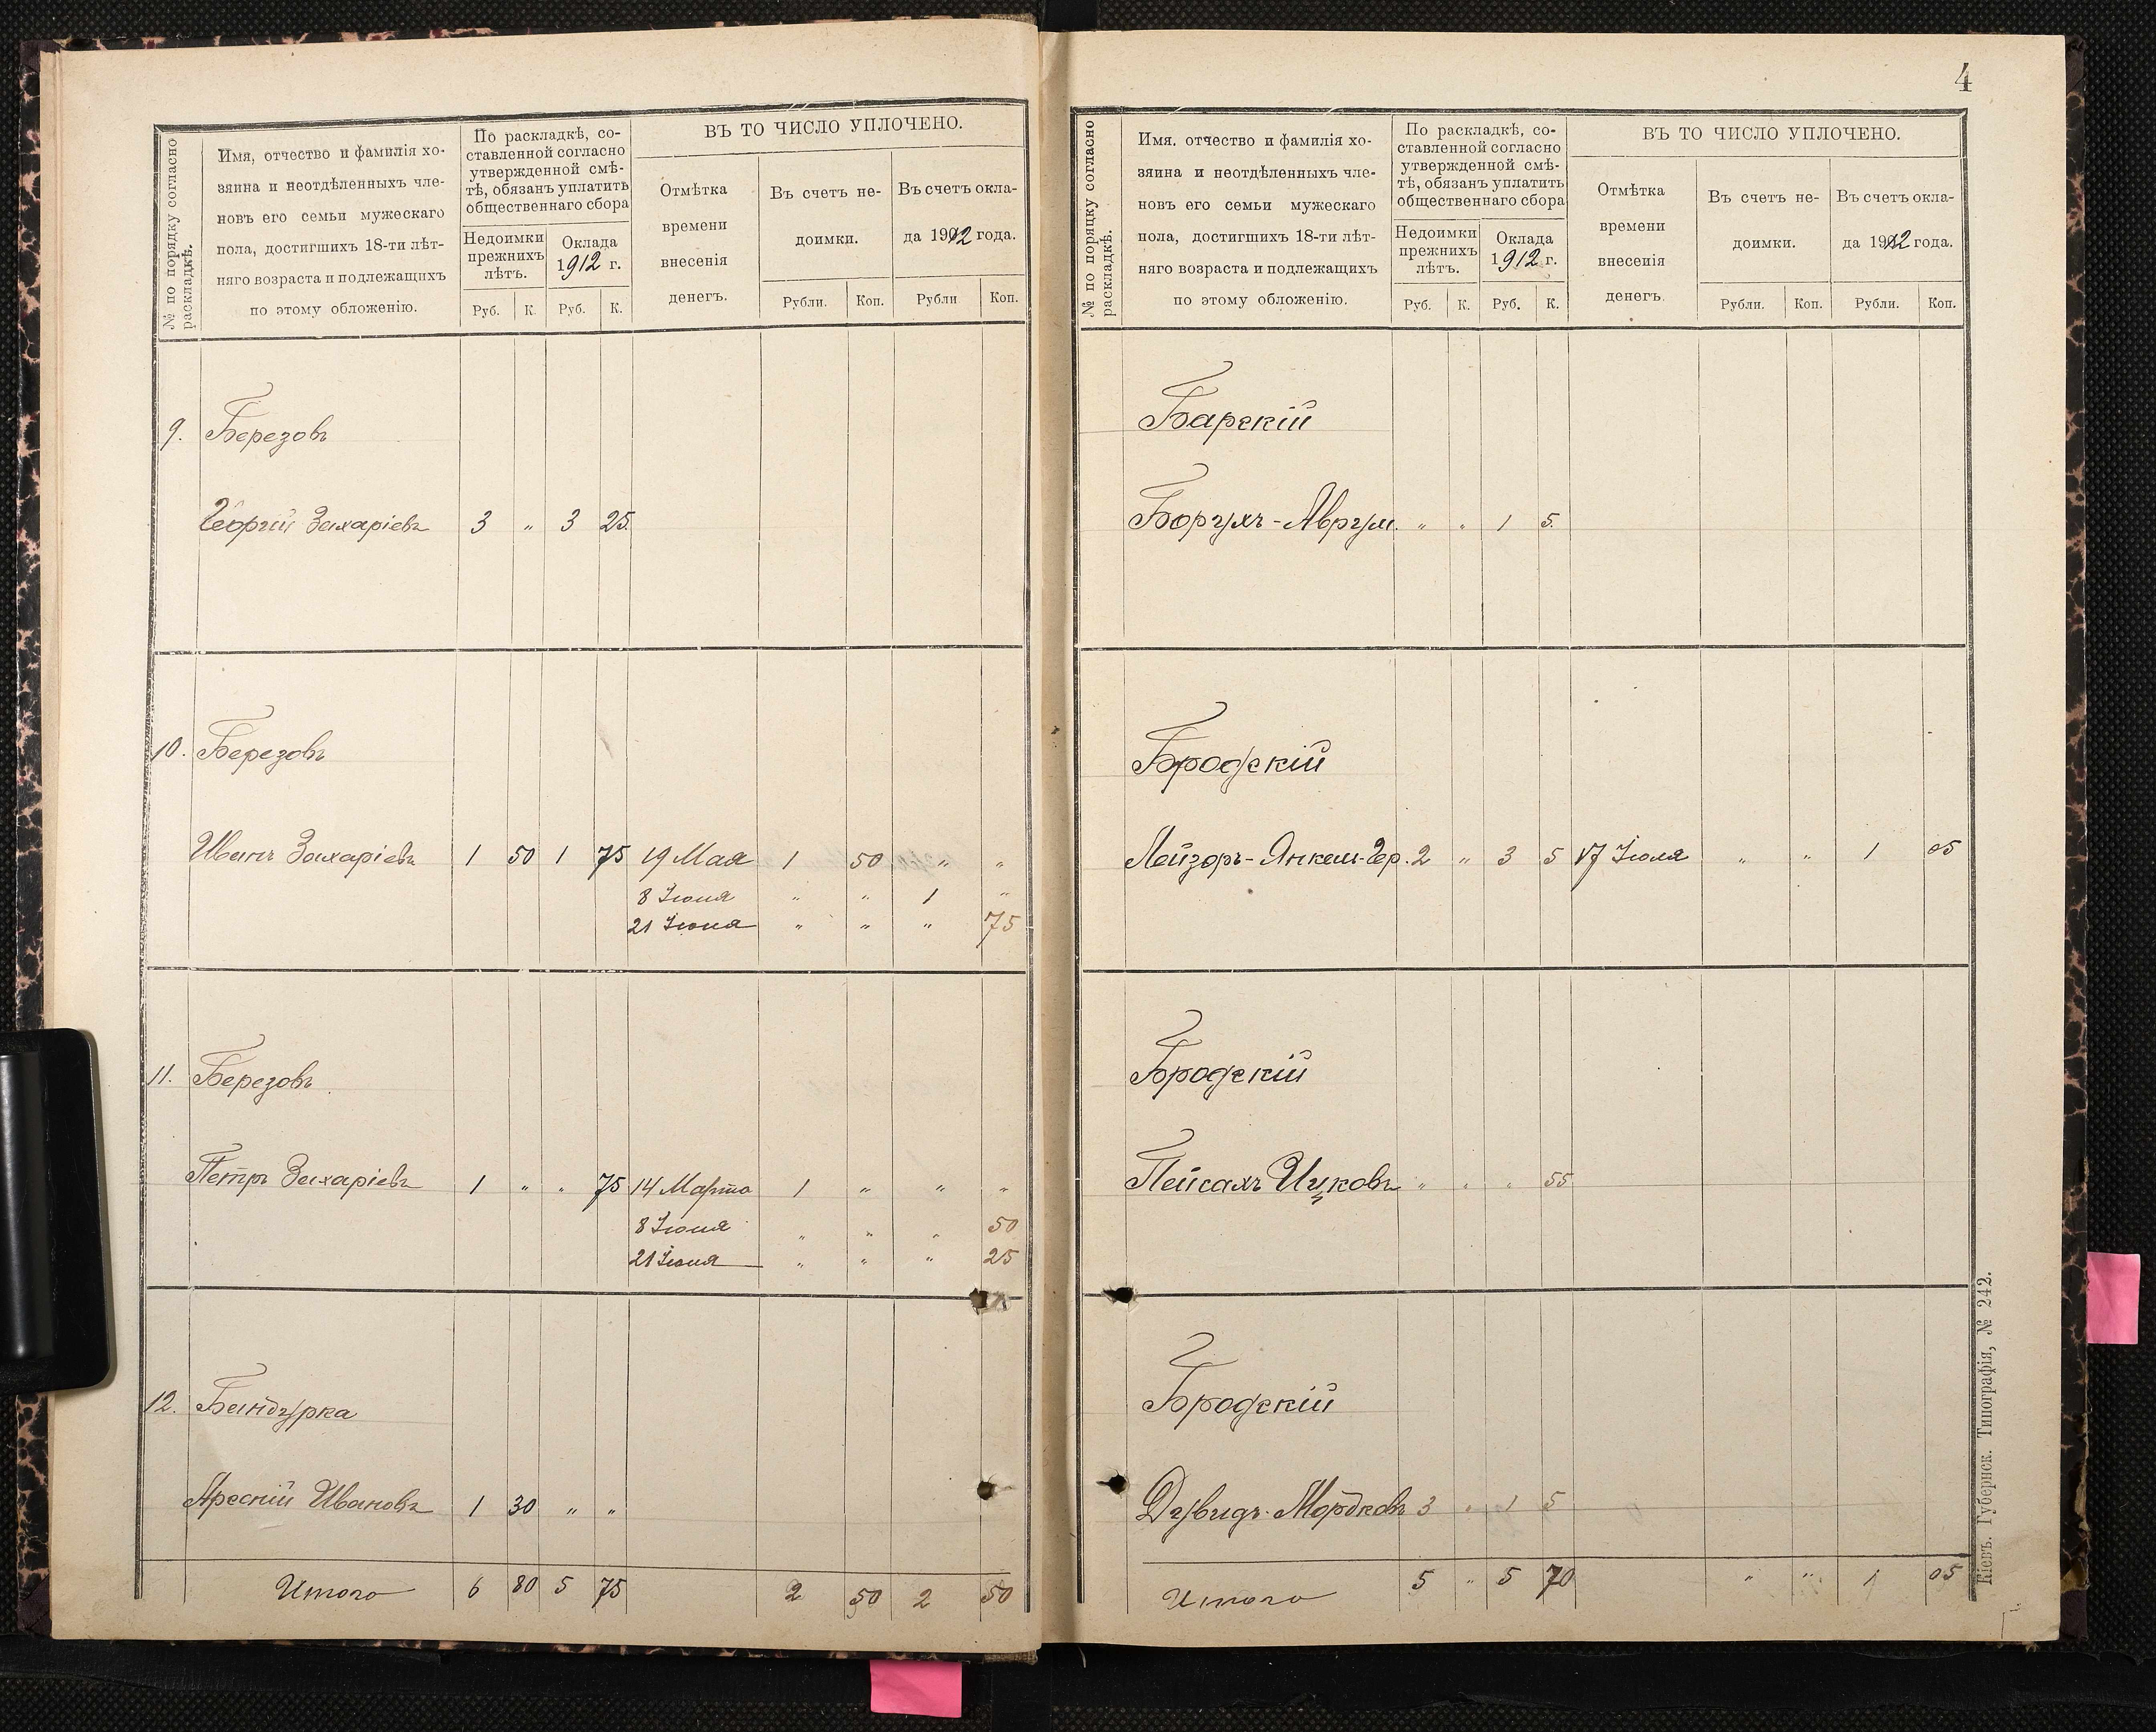 № по порядку согласно раскладкѣ.
Имя, отчество и фамилія хо-
зяина и неотдѣленныхъ чле-
новъ его семьи мужескаго
пола, достигшихъ 18-ти лѣт-
няго возраста и подлежащихъ
по этому обложенію.
По раскладкѣ, со-
ставленной согласно
утвержденной смѣ-
тѣ, обязанъ уплатить
общественнаго сбора
Недоимки
прежнихъ
лѣтъ.
Оклада
1912 г.
Руб. К. Руб. К.
ВЪ ТО ЧИСЛО УПЛОЧЕНО.
Отмѣтка
времени
внесенія
денегъ.
Въ счетъ не-
доимки.
Въ счетъ окла-
да 1912 года.
Рубли. Коп. Рубли Коп.
9. Березовъ
Георгій Захаріевъ 3 " 3 25.
10. Березовъ
Иванъ Захаріевъ 1 50 1 75 19 Мая 1 50 " "
8 Іюня " " 1 "
21 Іюня " " " 75
11. Березовъ
Петръ Захаріевъ 1 " " 75 14 Марта 1 " " "
8 Іюня " " " 50
21 Іюня " " " 25
12. Бандурка
Арсеній Ивановъ 1 30 " "
Итого 6 80 5 75 2 50 2 50
4
№ по порядку согласно раскладкѣ.
Имя. отчество и фамилія хо-
зяина и неотдѣленныхъ чле-
новъ его семьи мужескаго
пола, достигшихъ 18-ти лѣт-
няго возраста и подлежащихъ
по этому обложенію.
По раскладкѣ, со-
ставленной согласно
утвержденной смѣ-
тѣ, обязанъ уплатить
общественнаго сбора
Недоимки
прежнихъ
лѣтъ.
Оклада
1912 г.
Руб. К. Руб. К.
ВЪ ТО ЧИСЛО УПЛОЧЕНО.
Отмѣтка
времени
внесенія
денегъ.
Въ счетъ не-
доимки.
Въ счетъ окла-
да 1912 года.
Рубли. Коп. Рубли. Коп.
Барскій
Борухъ-Аврум. " " 1 5.
Бродскій
Лейзоръ-Янкел-Гер. 2 " 3 5 17 Іюля " " 1 05
Бродскій
Пейсахъ Ицковъ " " " 55
Бродскій
Дувидъ-Мордковъ 3 " 1 5
Итого 5 " 5 70 " " 1 05
Кіевъ. Губернск. Типографія, № 242.